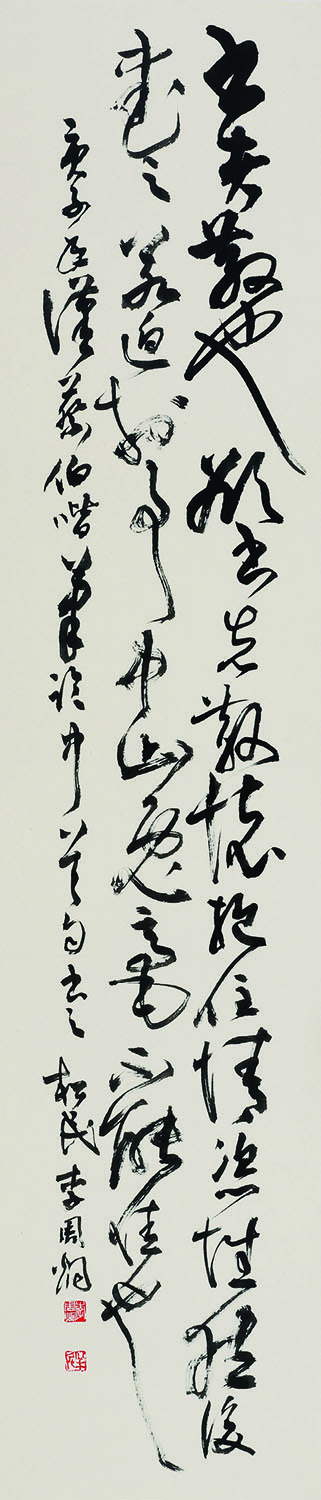 書者散也欲書先散懷抱任情恣性然後
書之若迫於事中山兔毫不能佳也
庚子 漢蔡伯喈筆論中 句書之 松民李周炯